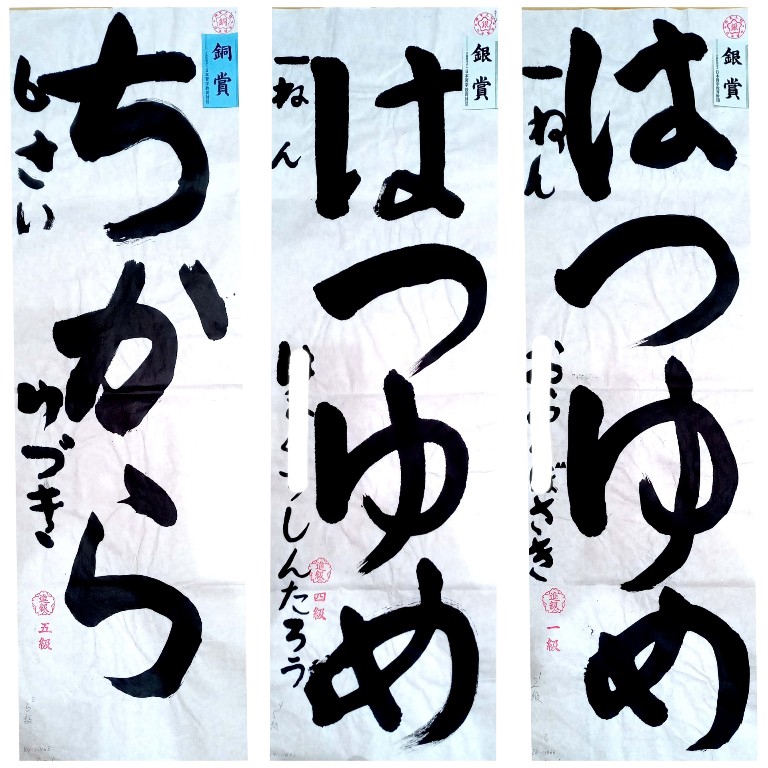 銅賞
ちから
6さい
ゆづき
進級
五級
銀賞
はつゆめ
一ねん
しんたろう
進級
四級
銀賞
はつゆめ
一ねん
さき
進級
一級